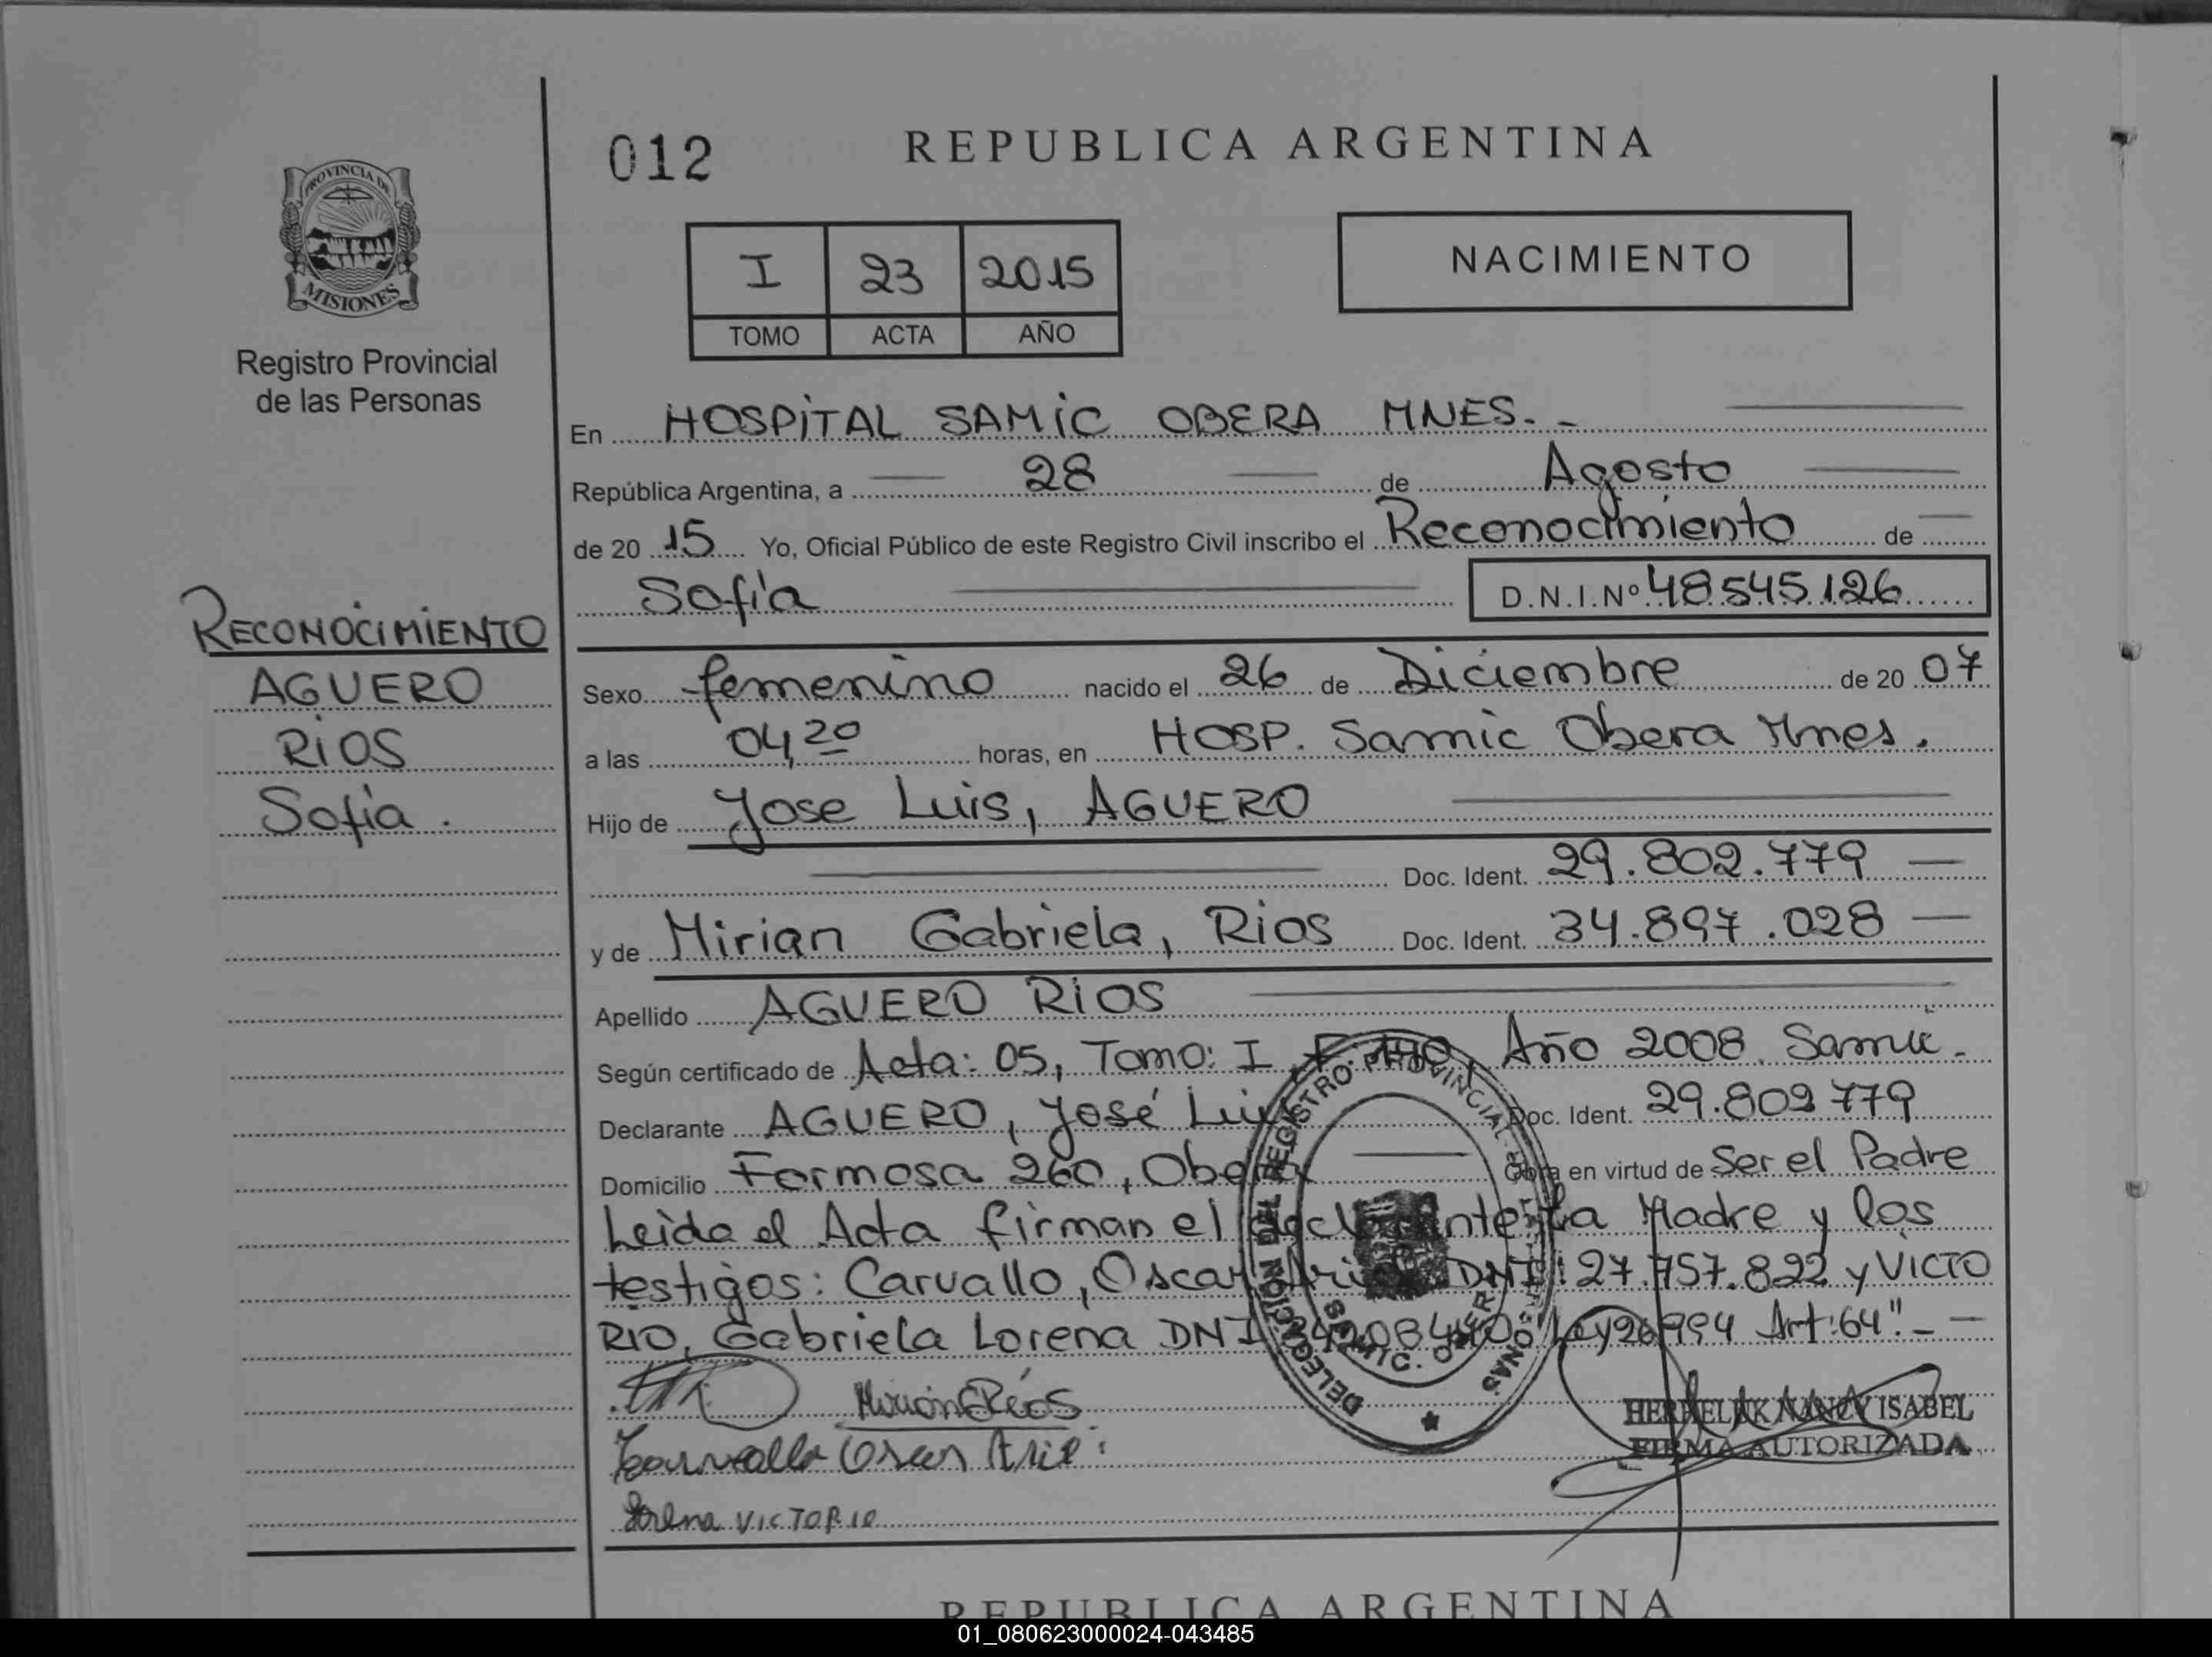 012
REPUBLICA ARGENTINA
PROVINCIA DE
MISIONES
Registro Provincial
de las Personas
I 23 2015
TOMO ACTA AÑO
NACIMIENTO
En HOSPITAL SAMIC OBERA MNES.-
República Argentina, a 28 de Agosto
de 20 15 Yo, Oficial Público de este Registro Civil inscribo el Reconocimiento de
Sofía D.N.I.Nº 48545126
RECONOCIMIENTO
AGUERO
RIOS
Sofía.
Sexo femenino nacido el 26 de Diciembre de 20 07
a las 04,20 horas, en HOSP. Samic Obera Mnes.
Hijo de Jose Luis, AGUERO
Doc. Ident. 29.802.779
y de Mirian Gabriela, Rios Doc. Ident. 34.897.028
Apellido AGUERO RIOS
Según certificado de Acta: 05, Tomo: I, Año 2008 Samic.
Declarante AGUERO, José Luis Doc. Ident. 29.802779
Domicilio Formosa 260, Obera Obra en virtud de Ser el Padre
Leida el Acta firman el declarante, La Madre y los
testigos: Carvallo, Oscar DNI: 27.757.822 y VICTO
RIO, Gabriela Lorena DNI "Ley 26994 Art:64".-
DELEGACION DEL REGISTRO PROVINCIAL DE LAS PERSONAS
SAMIC. OBERA
Mirian G Ríos
Carvallo Oscar
Lorena VICTORIO
HERRELUK NANCY ISABEL
FIRMA AUTORIZADA
REPUBLICA ARGENTINA
01_080623000024-043485